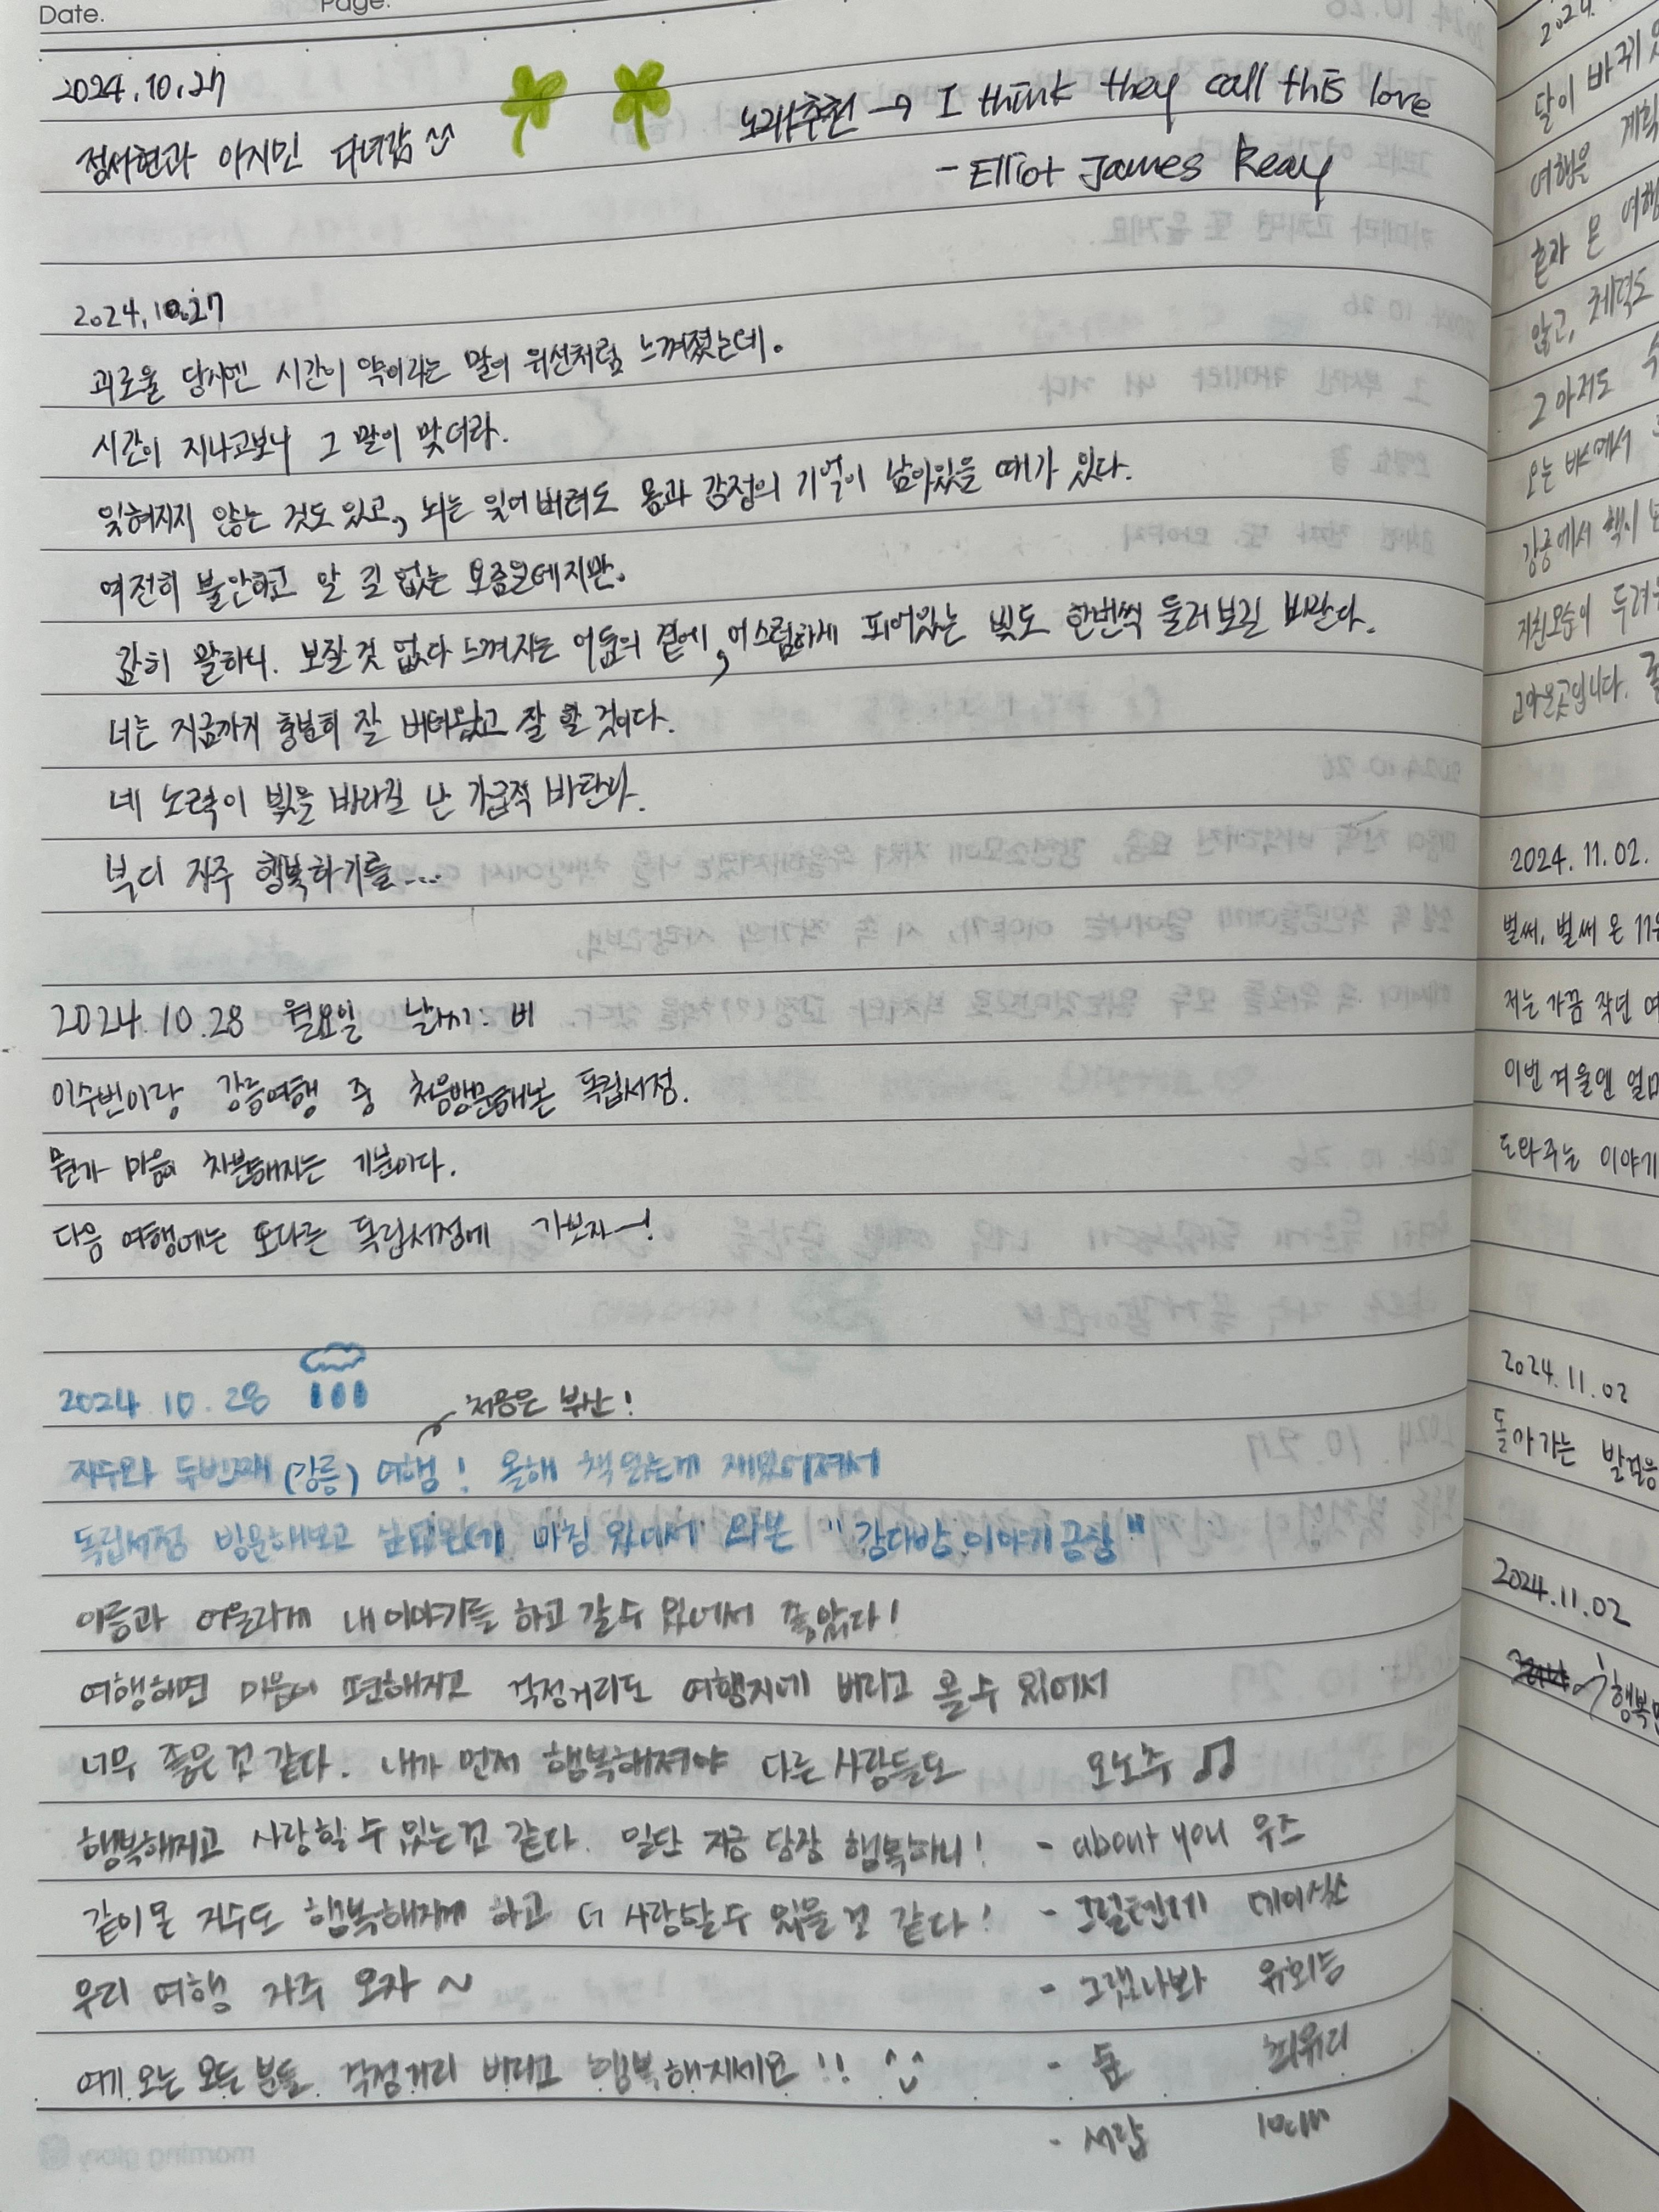 Date.
Page.
2024.10.27
정서현과 이지민 다녀감
노래추천 → I think they call this love
- Elliot James Reay
2024.10.27
괴로울 당시엔 시간이 약이라는 말이 위선처럼 느껴졌는데.
시간이 지나고보니 그 말이 맞더라.
잊혀지지 않는 것도 있고, 뇌는 잊어버려도 몸과 감정의 기억이 남아있을 때가 있다.
여전히 불안하고 알 길 없는 요즘일테지만.
감히 말하니. 보잘것 없다 느껴지는 어둠의 곁에, 어스럼하게 피어있는 빛도 한번씩 둘러보길 바란다.
너는 지금까지 충분히 잘 버텨왔고 잘 할 것이다.
네 노력이 빛을 바라길 난 가급적 바란다.
부디 자주 행복하기를...
2024.10.28 월요일 날씨: 비
이수빈이랑 강릉여행 중 처음방문해본 독립서점.
뭔가 마음이 차분해지는 기분이다.
다음 여행에는 또다른 독립서점에 가보자~!
2024.10.28
처음은 부산!
지수와 두번째 (강릉) 여행! 올해 책 읽는게 재밌어져서
독립서점 방문해보고 싶었는데 마침 있어서 와본 "강다방 이야기공장"
이름과 어울리게 내 이야기를 하고 갈 수 있어서 좋았다!
여행하면 마음이 편해지고 걱정거리도 여행지에 버리고 올 수 있어서
너무 좋은 것 같다. 내가 먼저 행복해져야 다른 사람들도
오노추 ♫
행복해지고 사랑할 수 있는 것 같다. 일단 지금 당장 행복하니!
- about you 우즈
같이 온 지수도 행복해지게 하고 더 사랑할 수 있을 것 같다!
데이식스
우리 여행 자주 오자 ~
- 그랬나봐 유회승
여기 오는 모든 분들 걱정거리 버리고 행복해지세요!!
- 숲 최유리
- 서랍 10cm
morning glory
2024.
달이 바뀌었
여행은 계획
혼자 온 여행
않고, 체력도
그마저도
오는 버스에서
강릉에서 혹시
지친모습이 두려
고마운곳입니다.
2024.11.02.
벌써, 벌써 온 11월
저는 가끔 작년 여
이번 겨울엔 얼마
도와주는 이야기
2024.11.02
돌아가는 발걸음
2024.11.02
행복